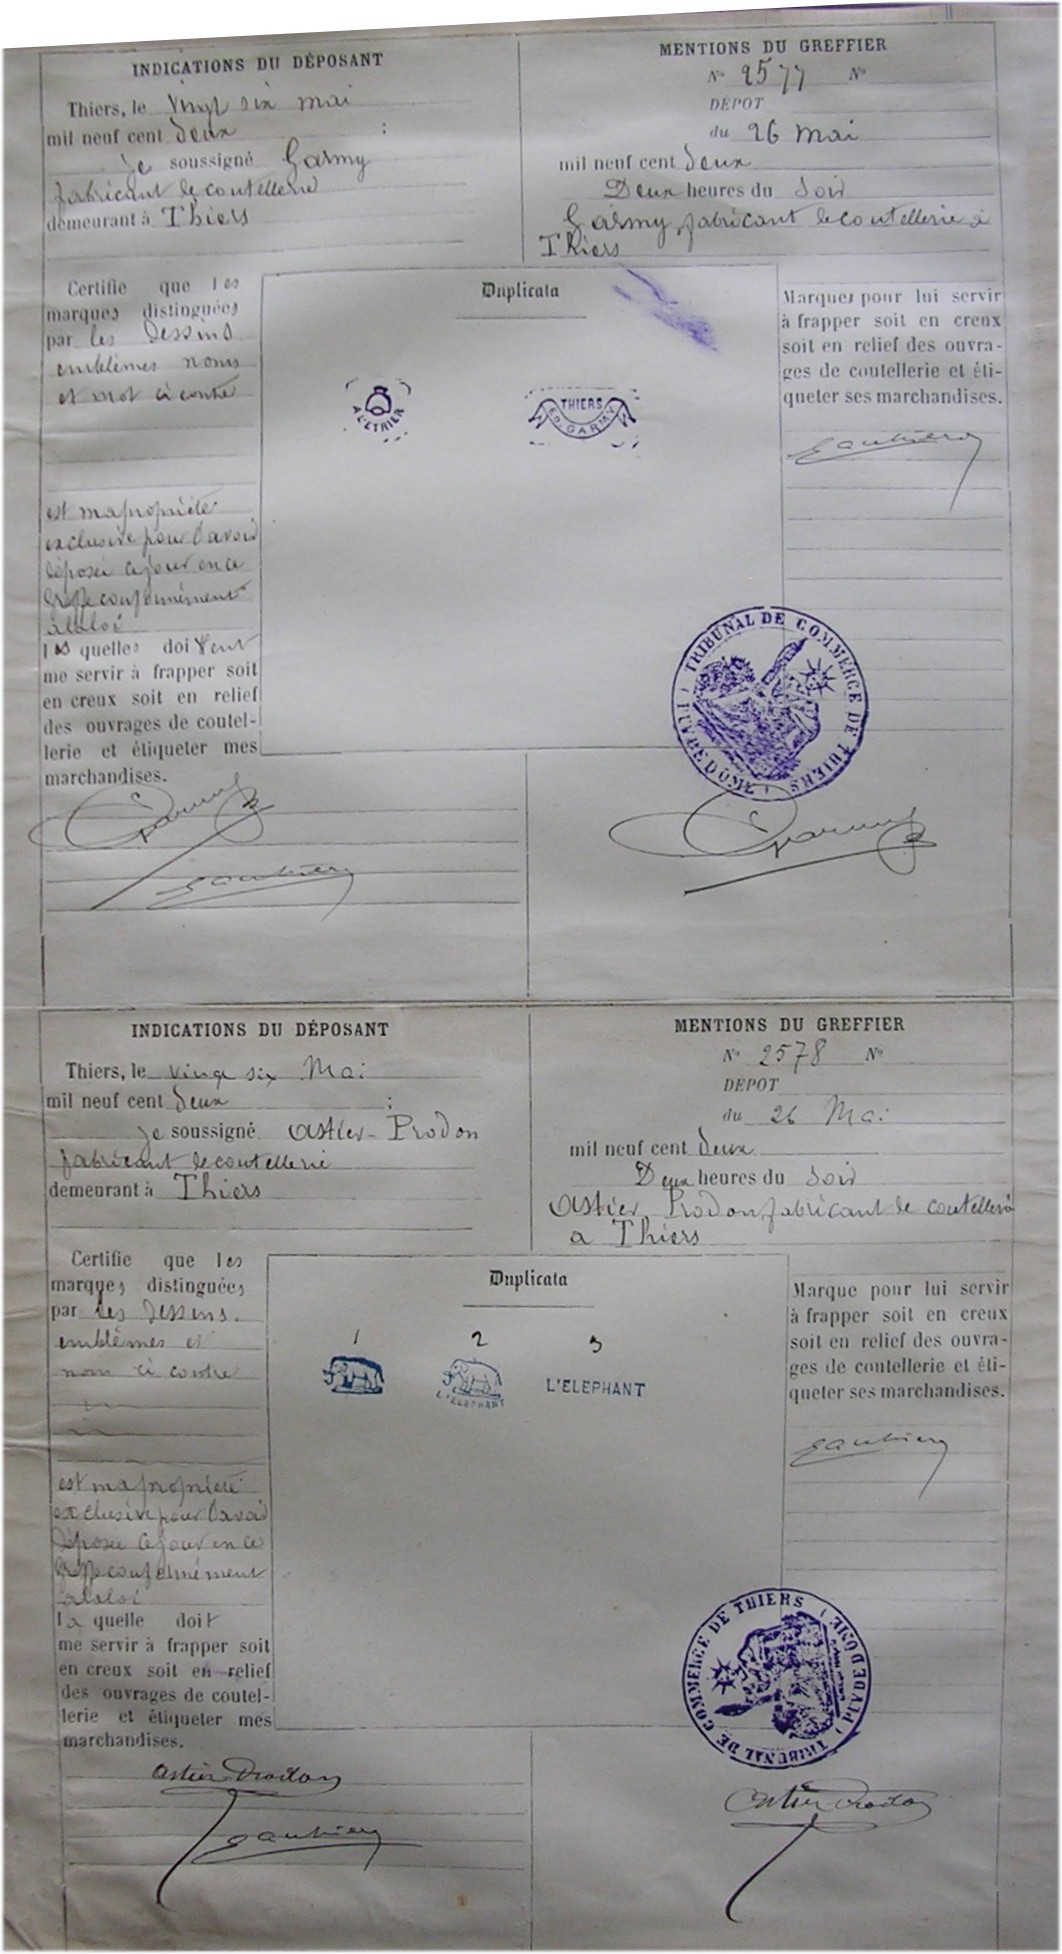 INDICATIONS DU DÉPOSANT
Thiers, le vingt six mai
mil neuf cent deux ;
je soussigné Garmy
fabricant de coutellerie
demeurant à Thiers
MENTIONS DU GREFFIER
N° 2577 N°
DÉPOT
du 26 mai
mil neuf cent deux
Deux heures du soir
Garmy, fabricant de coutellerie à
Thiers
Certifie que les
marques distinguées
par les dessins
emblèmes noms
et mot ci contre
est ma propriété
exclusive pour l'avoir
déposée ce jour en ce
greffe conformément
à la loi
les quelles doivent
me servir à frapper soit
en creux soit en relief
des ouvrages de coutel-
lerie et étiqueter mes
marchandises.
Duplicata
A L'ETRIER
THIERS
ED. GARMY
Marques pour lui servir
à frapper soit en creux
soit en relief des ouvra-
ges de coutellerie et éti-
queter ses marchandises.
TRIBUNAL DE COMMERCE DE THIERS
PUY DE DOME
Garmy
Garmy
INDICATIONS DU DÉPOSANT
Thiers, le vingt six Mai
mil neuf cent deux ;
je soussigné Astier-Prodon
fabricant de coutellerie
demeurant à Thiers
MENTIONS DU GREFFIER
N° 2578 N°
DÉPOT
du 26 Mai
mil neuf cent deux
Deux heures du soir
Astier Prodon, fabricant de coutellerie
a Thiers
Certifie que les
marques distinguées
par les dessins.
emblèmes et
nom ci contre
est ma propriété
exclusive pour l'avoir
déposée ce jour en ce
greffe conformément
à la loi
la quelle doit
me servir à frapper soit
en creux soit en relief
des ouvrages de coutel-
lerie et étiqueter mes
marchandises.
Duplicata
1 2 3
L'ELEPHANT
L'ELEPHANT
Marque pour lui servir
à frapper soit en creux
soit en relief des ouvra-
ges de coutellerie et éti-
queter ses marchandises.
TRIBUNAL DE COMMERCE DE THIERS
PUY DE DOME
Astier Prodon
Astier-Prodon